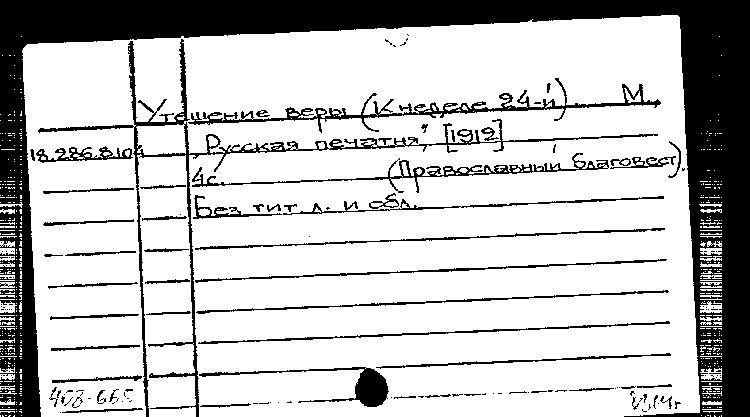 Утешение веры (К неделе 24-й). М.,
18.286.8.104 „Русская печатня“, [1912]
4с. (Православный благовест).
Без тит. л. и обл.